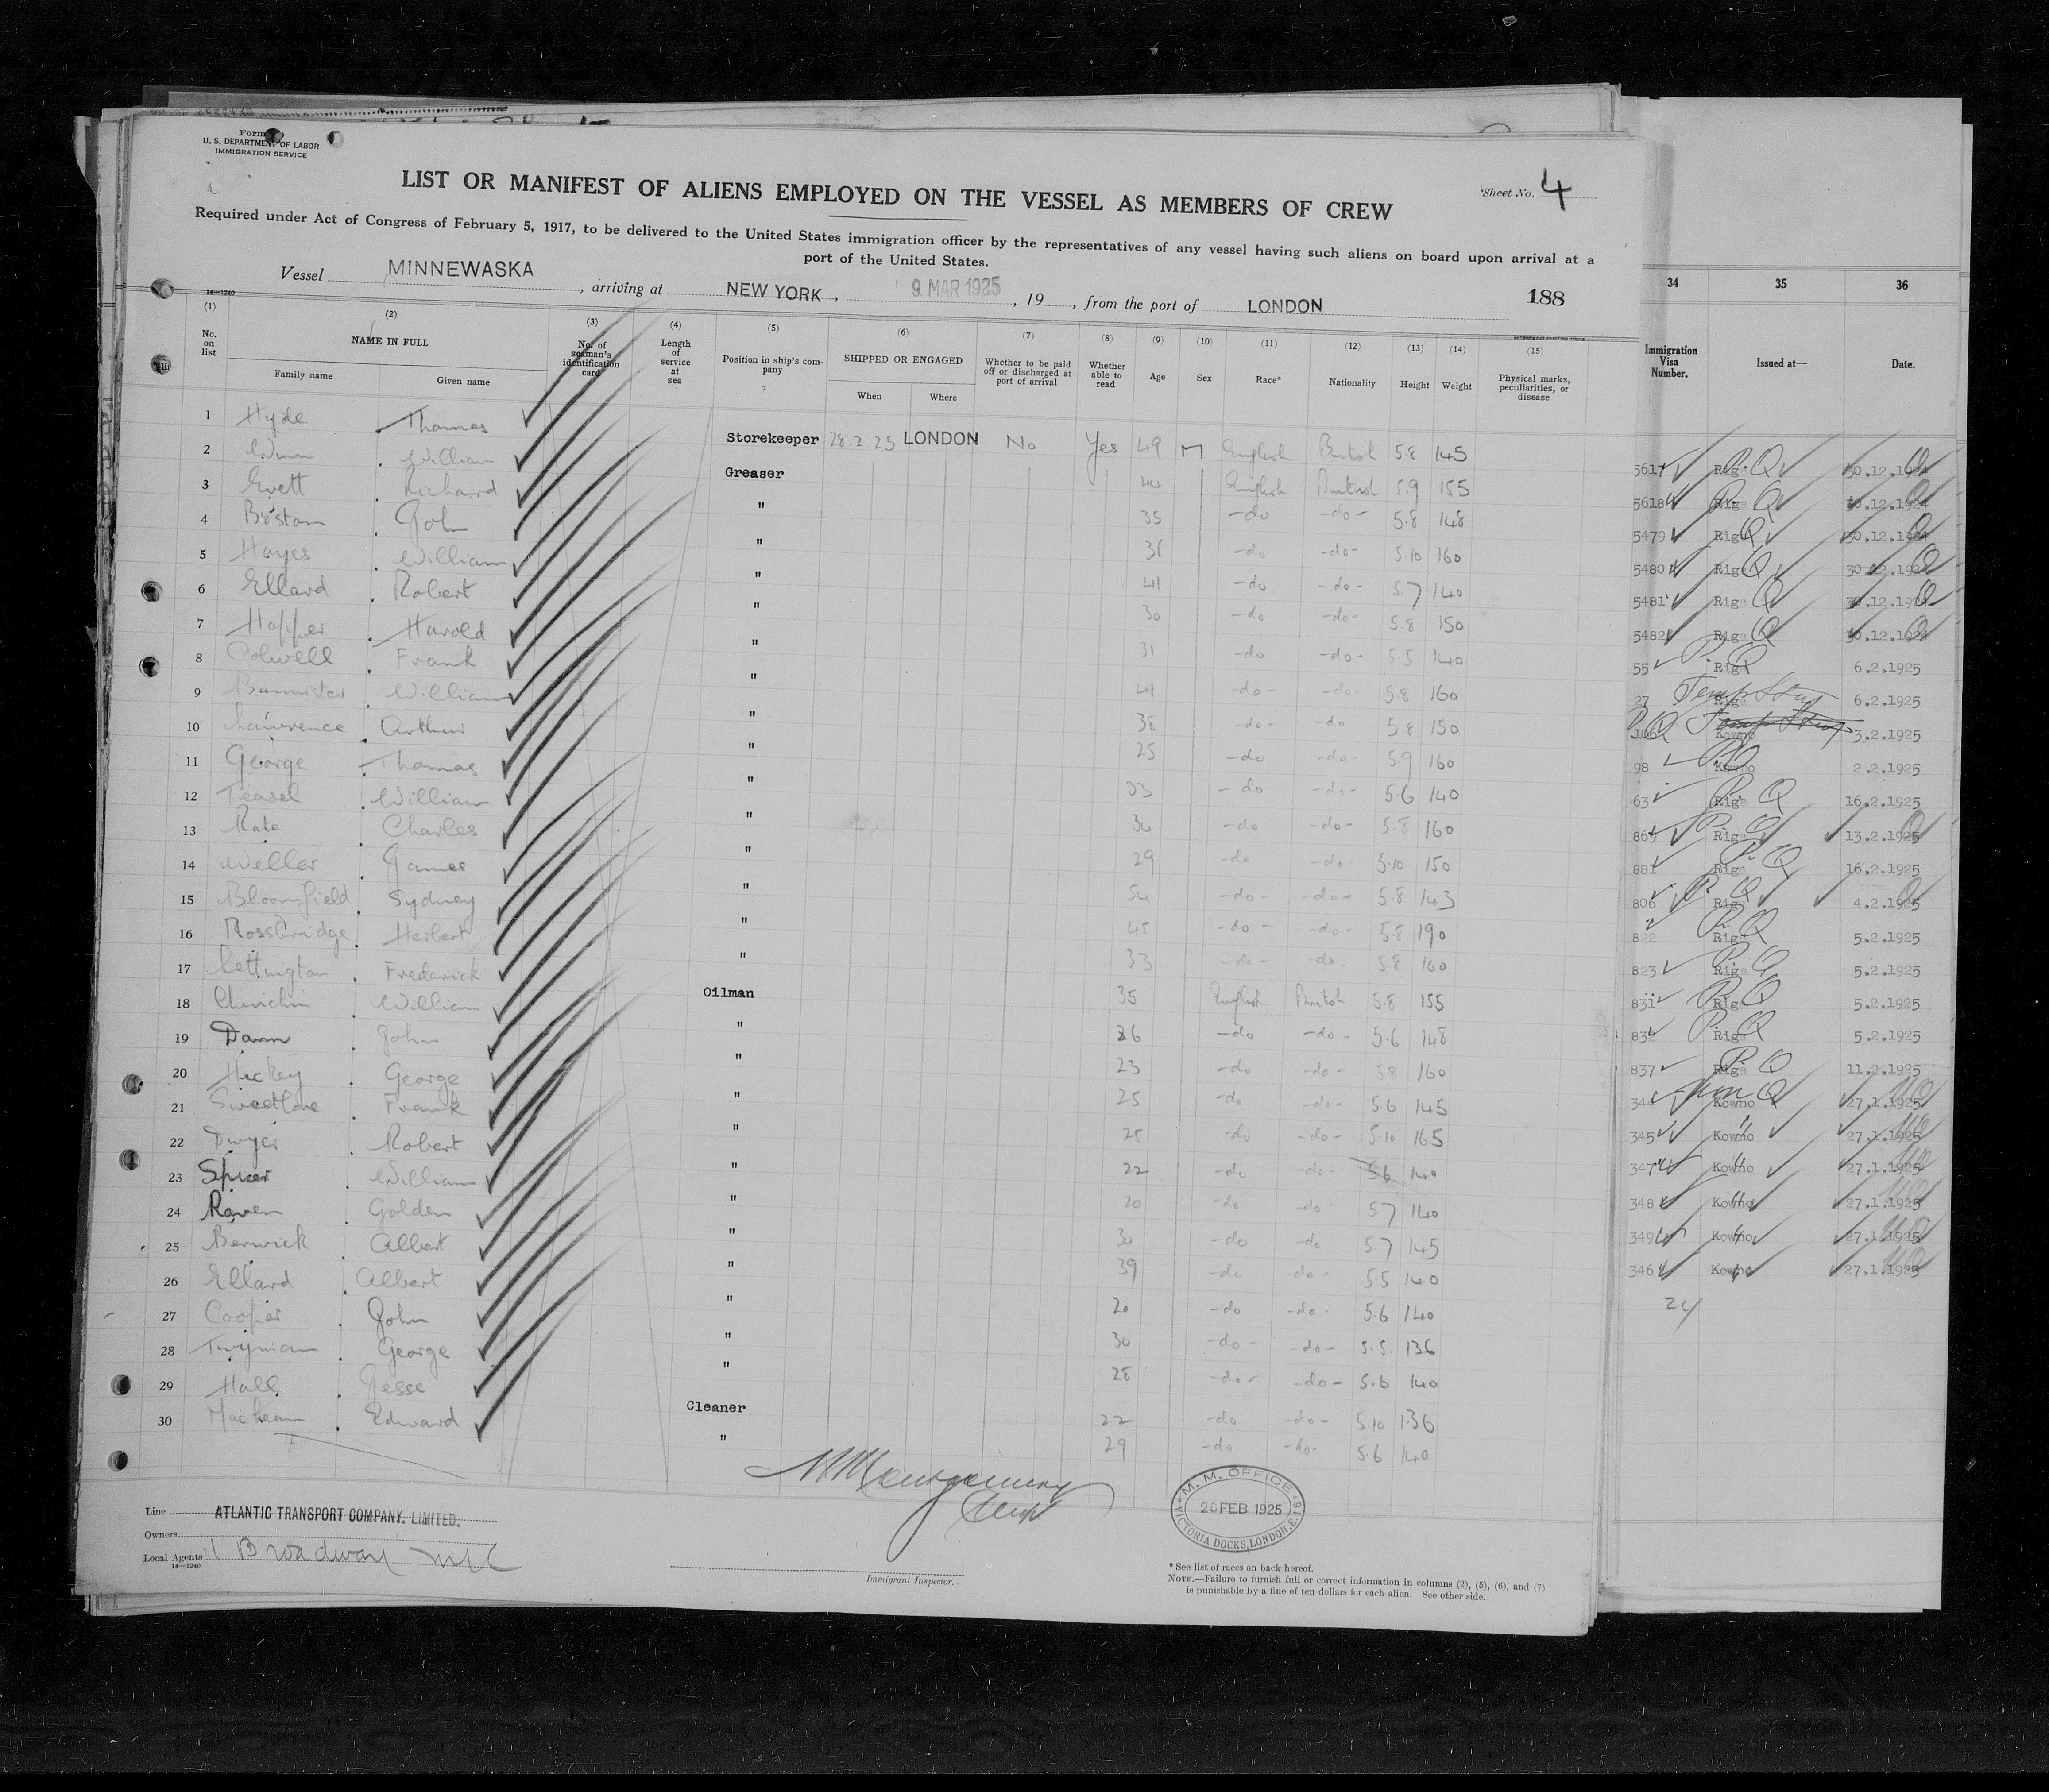 Form
U. S. DEPARTMENT OF LABOR
IMMIGRATION SERVICE
LIST OR MANIFEST OF ALIENS EMPLOYED ON THE VESSEL AS MEMBERS OF CREW
*Sheet No. 4
Required under Act of Congress of February 5, 1917, to be delivered to the United States immigration officer by the representatives of any vessel having such aliens on board upon arrival at a
port of the United States.
Vessel MINNEWASKA, arriving at NEW YORK, 9 MAR 1925, 19, from the port of LONDON 188
14—1240
(1) (2) (3) (4) (5) (6) (7) (8) (9) (10) (11) (12) (13) (14) (15) 34 35 36
No. on list NAME IN FULL No. of seaman's identification card Length of service at sea Position in ship's company SHIPPED OR ENGAGED Whether to be paid off or discharged at port of arrival Whether able to read Age Sex Race* Nationality Height Weight Physical marks, peculiarities, or disease Immigration Visa Number. Issued at— Date.
Family name Given name When Where
1 Hyde Thomas Storekeeper 28.2.25 LONDON No Yes 49 M English British 5.8 145
2 Gunn William Greaser 40 English British 5.9 155
3 Evett Richard " 35 -do -do- 5.8 148
4 Boston John " -do -do- 5.10 160
5 Hayes William " 41 -do -do- 5.7 140
6 Ellard Robert " 30 -do -do- 5.8 150
7 Happer Harold " 31 -do -do- 5.5 140
8 Colwell Frank " 41 -do- -do- 5.8 160
9 Bannister William " 38 -do- -do 5.8 150
10 Lawrence Arthur " 25 -do -do- 5.9 160
11 George Thomas " 33 -do -do- 5.6 140
12 Teasel William " 34 -do -do- 5.8 160
13 Kate Charles " 29 -do -do- 5.10 150
14 Weller James " 54 -do- -do- 5.8 143
15 Bloomfield Sydney " 45 -do- -do- 5.8 190
16 Rossbridge Herbert " 33 -do- -do- 5.8 160
17 Lettington Frederick Oilman 35 English British 5.8 155
18 William " 26 -do -do- 5.6 148
19 Dann John " 23 -do -do- 5.8 160
20 Hickey George " 25 -do -do- 5.6 145
21 Sweetlove Frank " 25 -do -do- 5.10 165
22 Dwyer Robert " 22 -do -do- 5.6 140
23 Spicer William " 20 -do -do- 5.7 140
24 Raven Golden " 30 -do -do 5.7 145
25 Berwick Albert " 39 -do -do- 5.5 140
26 Ellard Albert " 20 -do -do- 5.6 140
27 Cooper John " 30 -do- -do- 5.5 136
28 Twyman George " 28 -do- -do- 5.6 140
29 Hall Jesse Cleaner 22 -do -do- 5.10 136
30 MacLean Edward " 29 -do -do- 5.6 140
5617 Riga 30.12.1924
5618 Riga 30.12.1924
5479 Riga 30.12.1924
5480 Riga 30.12.1924
5481 Riga 30.12.1924
5482 Riga 30.12.1924
55 Riga 6.2.1925
27 Riga 6.2.1925
106 Kowno 3.2.1925
98 Kowno 2.2.1925
63 Riga 16.2.1925
869 Riga 13.2.1925
881 Riga 16.2.1925
806 Riga 4.2.1925
822 Riga 5.2.1925
823 Riga 5.2.1925
831 Riga 5.2.1925
832 Riga 5.2.1925
837 Riga 11.2.1925
344 Kowno 27.1.1925
345 Kowno 27.1.1925
347 Kowno 27.1.1925
348 Kowno 27.1.1925
349 Kowno 27.1.1925
346 Kowno 27.1.1925
24
Montgomery
M. M. OFFICE
28 FEB 1925
VICTORIA DOCKS, LONDON, E.16
Line ATLANTIC TRANSPORT COMPANY, LIMITED.
Owners
Local Agents 1 Broadway NYC
14—1240
Immigrant Inspector.
* See list of races on back hereof.
NOTE.—Failure to furnish full or correct information in columns (2), (5), (6), and (7)
is punishable by a fine of ten dollars for each alien. See other side.